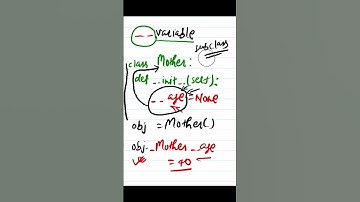 __ variable
subclass
class Mother:
def __init__(self):
__age = None
obj = Mother()
obj._Mother__age
= 40